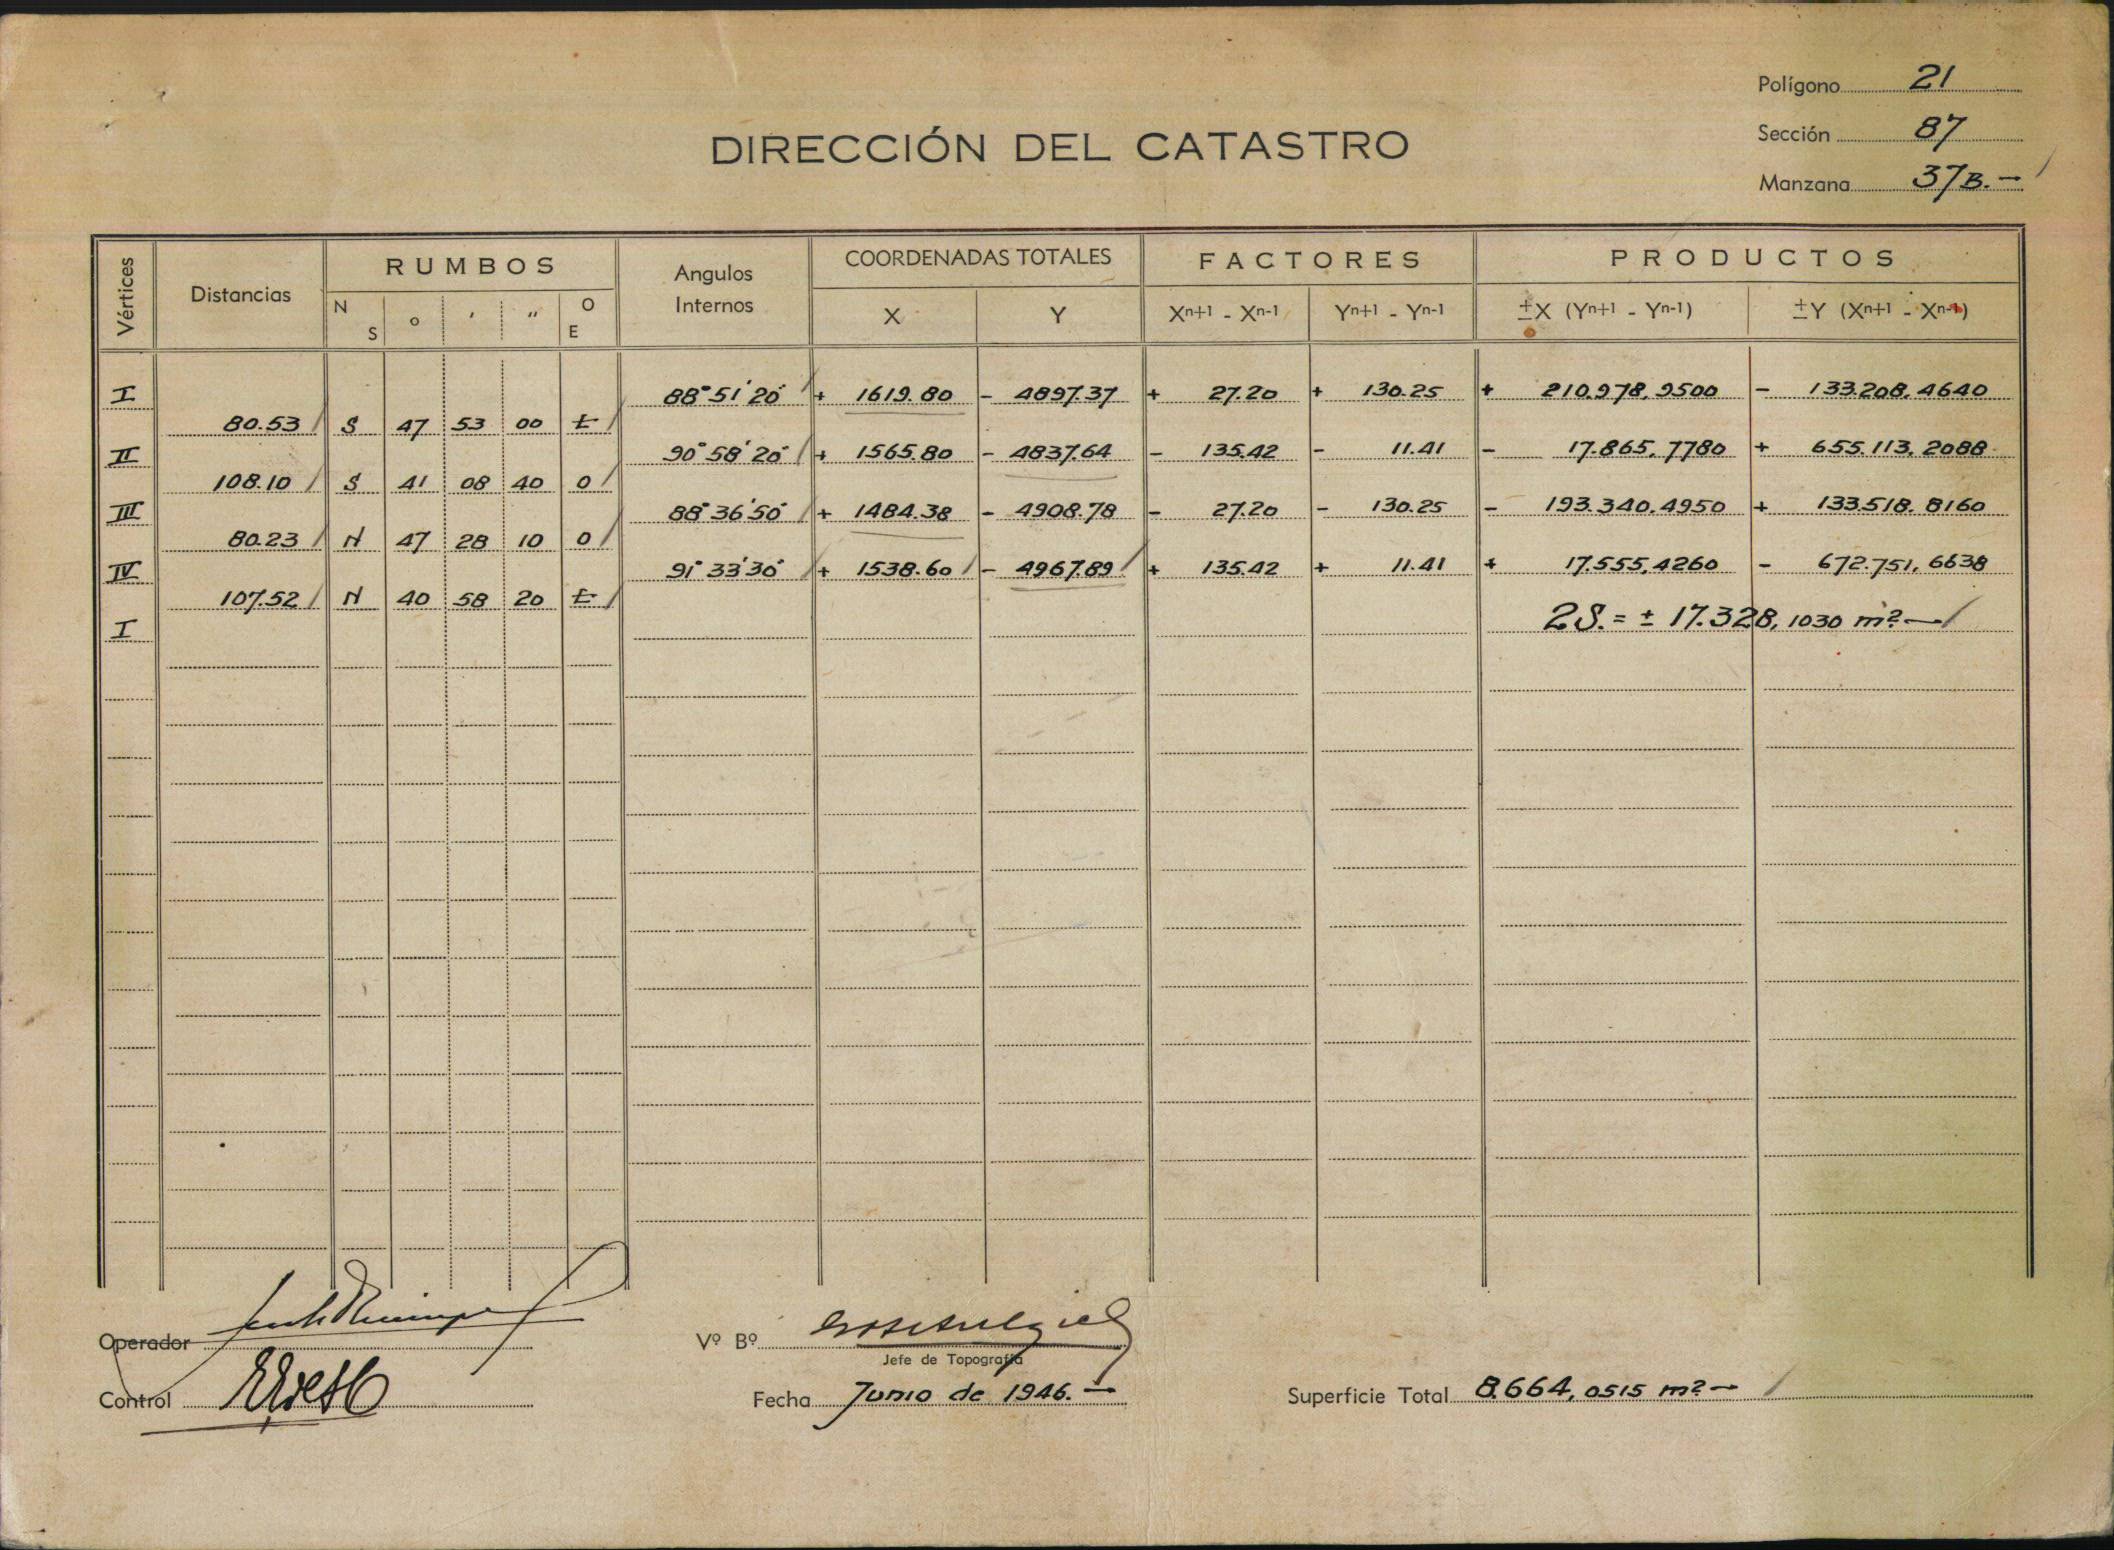 Polígono 21
Sección 87
Manzana 37B.-
DIRECCIÓN DEL CATASTRO
Vértices Distancias RUMBOS Angulos Internos COORDENADAS TOTALES FACTORES PRODUCTOS
N S o ' " O E X Y Xn+1 - Xn-1 Yn+1 - Yn-1 ±X (Yn+1 - Yn-1) ±Y (Xn+1 - Xn-1)
I 88° 51' 20" + 1619.80 - 4897.37 + 27.20 + 130.25 + 210.978,9500 - 133.208,4640
80.53 S 47 53 00 E
II 90° 58' 20" + 1565.80 - 4837.64 - 135.42 - 11.41 - 17.865,7780 + 655.113,2088
108.10 S 41 08 40 O
III 88° 36' 50" + 1484.38 - 4908.78 - 27.20 - 130.25 - 193.340,4950 + 133.518,8160
80.23 N 47 28 10 O
IV 91° 33' 30" + 1538.60 - 4967.89 + 135.42 + 11.41 + 17.555,4260 - 672.751,6638
107.52 N 40 58 20 E
I 2S. = ± 17.328,1030 m²-
Operador
Vº Bº
Jefe de Topografía
Control
Fecha Junio de 1946.-
Superficie Total 8.664,0515 m²-